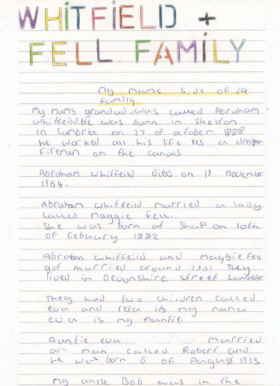 WHITFIELD +
FELL FAMILY
My mums side of the
family
My mums grandad was called Abraham
whitfield. He was born in
in Cumbria on 27 of october 1888
He worked all his life as a
Fireman on the
Abraham Whitfield died on 11 November
Abraham whitfield married a lady
called Maggie Fell.
She was born at Shap on 10th
of February 1892
Abraham whitfield and Maggie Fell
got married around They
lived in Devonshire street
They had two children called
Eva and is my nana
eva is my Auntie
Auntie eva married
a man called Robert and
he was born 6 of August 1913
My uncle Bob was in the